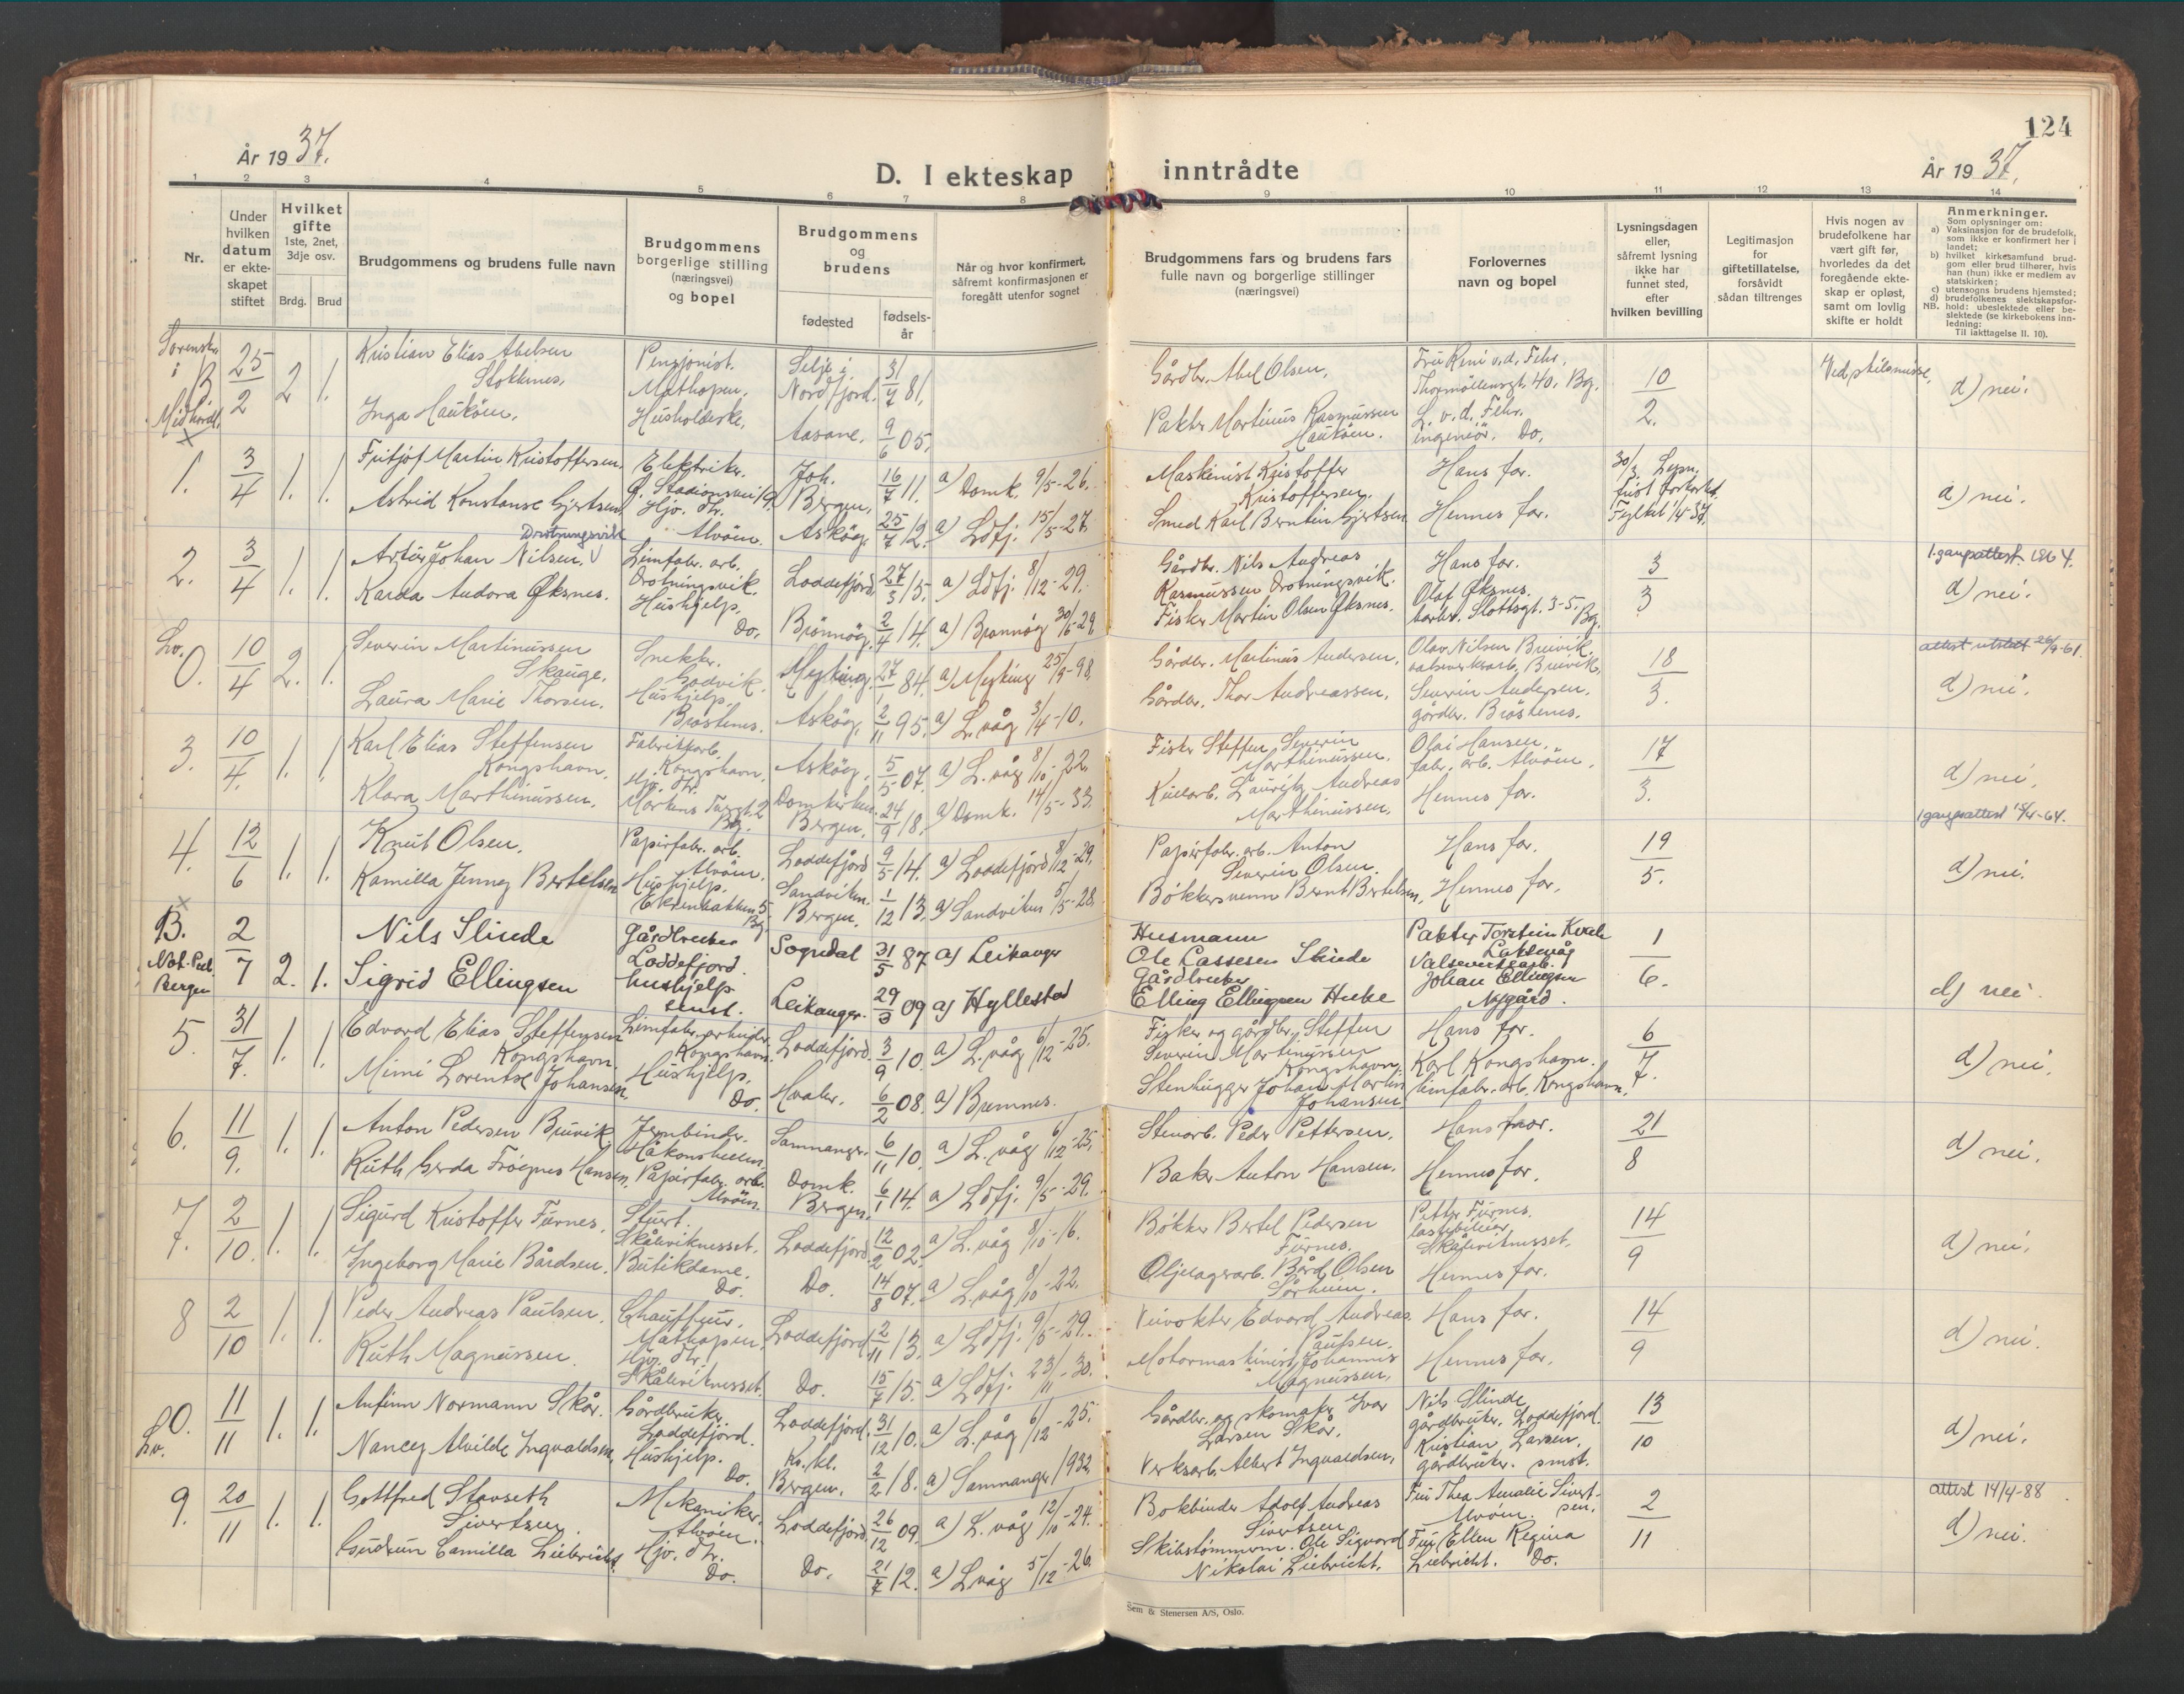 124
År 1937.
D. I ekteskap inntrådte
År 1937.
1 2 3 4 5 6 7 8 9 10 11 12 13 14
Nr.
Under hvilken datum er ekte-skapet stiftet
Hvilket gifte
1ste, 2net, 3dje osv.
Brdg. Brud
Brudgommens og brudens fulle navn
Brudgommens borgerlige stilling (næringsvei) og bopel
Brudgommens og brudens
fødested
fødsels-år
Når og hvor konfirmert, såfremt konfirmasjonen er foregått utenfor sognet
Brudgommens fars og brudens fars fulle navn og borgerlige stillinger (næringsvei)
Forlovernes navn og bopel
Lysningsdagen eller, såfremt lysning ikke har funnet sted, efter hvilken bevilling
Legitimasjon for giftetillatelse, forsåvidt sådan tiltrenges
Hvis nogen av brudefolkene har vært gift før, hvorledes da det foregående ekte-skap er opløst, samt om lovlig skifte er holdt
Anmerkninger.
Som oplysninger om:
a) Vaksinasjon for de brudefolk, som ikke er konfirmert her i landet;
b) hvilket kirkesamfund brud-gom eller brud tilhører, hvis han (hun) ikke er medlem av statskirken;
c) utensogns brudens hjemsted;
d) brudefolkenes slektskapsfor-hold: ubeslektede eller be-slektede (se kirkebokens inn-ledning:
NB. Til iakttagelse II. 10).
Sorenskr. i B Midhordl. 25/2 2 1.
Kristian Elias Abelsen Stokknes, Pensjonist. Mathopen. Selje i Nordfjord. 31/7 81,
Inga Hauköen. Husholderske, Aasane. 9/6 05.
Gårdbr. Abel Olsen, Fru Reni v.d. Fehr, Thormøllensgt. 40, Bg. 10/2. Ved skilsmisse, d) nei.
Pakter Martinus Rasmussen Hauköen. L. v.d. Fehr. ingeniør. Do.
1. 3/4 1. 1.
Fritjof Martin Kristoffersen. Elektriker. G. Stadionsvei 19. Joh. Bergen, 16/7 11. a) Domk. 9/5-26.
Astrid Konstanse Gjertsen Hjv. dtr. Alvöen. Asköy. 25/7 12. a) Ldfj. 15/5-27.
Maskinist Kristoffer Kristoffersen. Hans far. 30/3 Lysn. frist forkortet Fylket 1/4 37. d) nei.
Smed Karl Berntin Gjertsen Hennes far.
2. 3/4 1. 1.
Drotningsvik
Artur Johan Nilsen. Limfabr. arb. Drotningsvik. Loddefjord 27/3 15. a) Ldfj. 8/12-29.
Karda Andora Øksnes. Hushjelp. Do. Brönnöy. 2/4 14. a) Brønnöy 30/6-29.
Gårdbr. Nils Andreas Rasmussen Drotningsvik. Hans far. 3/3 1. gangsattest 1964. d) nei.
Fisker Martin Olsen Øksnes. Olaf Øksnes. barber. Slottsgt. 3-5. Bg.
Lv. 0. 10/4 2. 1.
Severin Martinussen Skauge. Snekker. Godvik. Meyking. 27/1 84. a) Meyking 25/9-98.
Laura Marie Thorsen. Hushjelp. Bröstenes. Asköy. 2/11 95. a) L.våg 3/4-10.
Gårdbr. Martinus Andersen. Olav Nilsen Breivik. valseverksarb. Breivik. 18/3. attest utstedt 26/9-61. d) nei.
Gårdbr. Thor Andreassen. Severin Andersen. gårdbr. Bröstenes.
3. 10/4. 1. 1.
Karl Elias Steffensen Kongshavn. Fabrikkarb. Kongshavn. Asköy. 5/5 07. a) L.våg 8/10-22.
Klara Marthinussen. Hjv. dtr. Markens Torggt. 2 Bg. Domkirken Bergen. 24/9 18. a) Domk. 14/5-33.
Fisker Steffen Severin Marthinussen. Olai Hansen. fabr. arb. Alvöen. 17/3. d) nei.
Kullarb. Lauritz Andreas Marthinussen. Hennes far.
4. 12/6 1. 1.
Knut Olsen. Papirfabr. arb. Alvöen. Loddefjord 9/5 14. a) Loddefjord 8/12-29.
Kamilla Jenney Bertelsen Hushjelp. Ekrenbakken 5. Bg. Sandviken Bergen. 1/12 13. a) Sandviken 5/5-28.
Papirfabr. arb. Anton Severin Olsen. Hans far. 19/5. 1 gangsattest 15/4-64. d) nei.
Bøkkersvenn Bernt Bertelsen, Hennes far.
B. Not. Publ. Bergen 2/7 2. 1.
Nils Slinde Gårdbruker Loddefjord. Sogndal 31/5 87 a) Leikanger
Sigrid Ellingsen hushjelp smst. Leikanger. 29/3 09 a) Hyllestad
Husmann Ole Lassesen Slinde Pakter Torstein Kvale Laksevåg 1/6. d) nei.
Gårdbruker Elling Ellingsen Hucke Valseverksarb. Johan Ellingsen Nygård.
5. 31/7. 1. 1.
Edvard Elias Steffensen Kongshavn. Limfabr. arbeider Kongshavn. Loddefjord. 3/9 10. a) L.våg 6/12-25.
Mimi Lorentse Johansen. Hushjelp. Do. Hvaler. 6/2 08. a) Bremnes.
Fisker og gårdbr. Steffen Severin Martinussen Kongshavn. Hans far. 6/7. d) nei.
Stenhugger Johan Martin Johansen Karl Kongshavn. limfabr. arb. Kongshavn.
6. 11/9. 1. 1.
Anton Pedersen Breivik. Jernbinder. Håkonshellen. Samnanger. 6/11 10. a) L.våg 6/12-25.
Ruth Gerda Frögnes Hansen. Papirfabr. arb. Alvöen. Domk. Bergen. 6/1 14. a) Ldfj. 9/5-29.
Stenarb. Peder Pettersen. Hans far. 21/8 d) nei.
Baker Anton Hansen. Hennes far.
7. 2/10. 1. 1.
Sigurd Kristoffer Furnes. Stuert. Skåleviknesset. Loddefjord 12/2 02. a) L.våg 8/10-16.
Ingeborg Marie Bårdsen. Butikdame. Do. Do. 14/8 07. a) L.våg 8/10-22.
Bøkker Bertel Pedersen Furnes. Petter Furnes. lastebileier, Skåleviknesset. 14/9 d) nei.
Oljelagerarb. Bård Olsen Sørheim. Hennes far.
8 2/10 1. 1.
Peder Andreas Paulsen. Chauffeur. Mathopen. Loddefjord 2/11 13. a) Ldfj. 9/5-29.
Ruth Magnussen. Hjv. dtr. Skåleviknesset. Do. 15/7 15. a) Ldfj. 23/11-30.
Veivokter Edvard Andreas Paulsen. Hans far. 14/9 d) nei.
Motormaskinist Johannes Magnussen. Hennes far.
0. Lv. 11/11 1. 1.
Anfinn Normann Skår. Gårdbruker. Loddefjord. Loddefjord. 31/12 10. a) L.våg 6/12-25.
Nancy Alvilde Ingvaldsen, Hushjelp. Do. Kv. kl. Bergen. 2/2 18. a) Samnanger 1932.
Gårdbr. og skomaker Ivar Larsen Skår. Nils Slinde gårdbruker. Loddefjord. 13/10 d) nei.
Verksarb. Albert Ingvaldsen, Kristian Larsen, gårdbruker. smst.
9. 20/11 1. 1.
Gottfred Stavseth Sivertsen Mekaniker. Alvöen. Loddefjord 26/12 09. a) L.våg 12/10-24.
Gudrun Camilla Liebricht. Hjv. dtr. Do. Do. 21/7 12. a) L.våg 5/12-26.
Bokbinder Adolf Andreas Sivertsen Fru Thea Amalie Sivertsen. Alvöen. 2/11 attest 14/4-88 d) nei.
Skibstømmerm. Ole Sigvard Nikolai Liebricht. Fru Ellen Regina Liebricht. Do.
Sem & Stenersen A/S, Oslo.